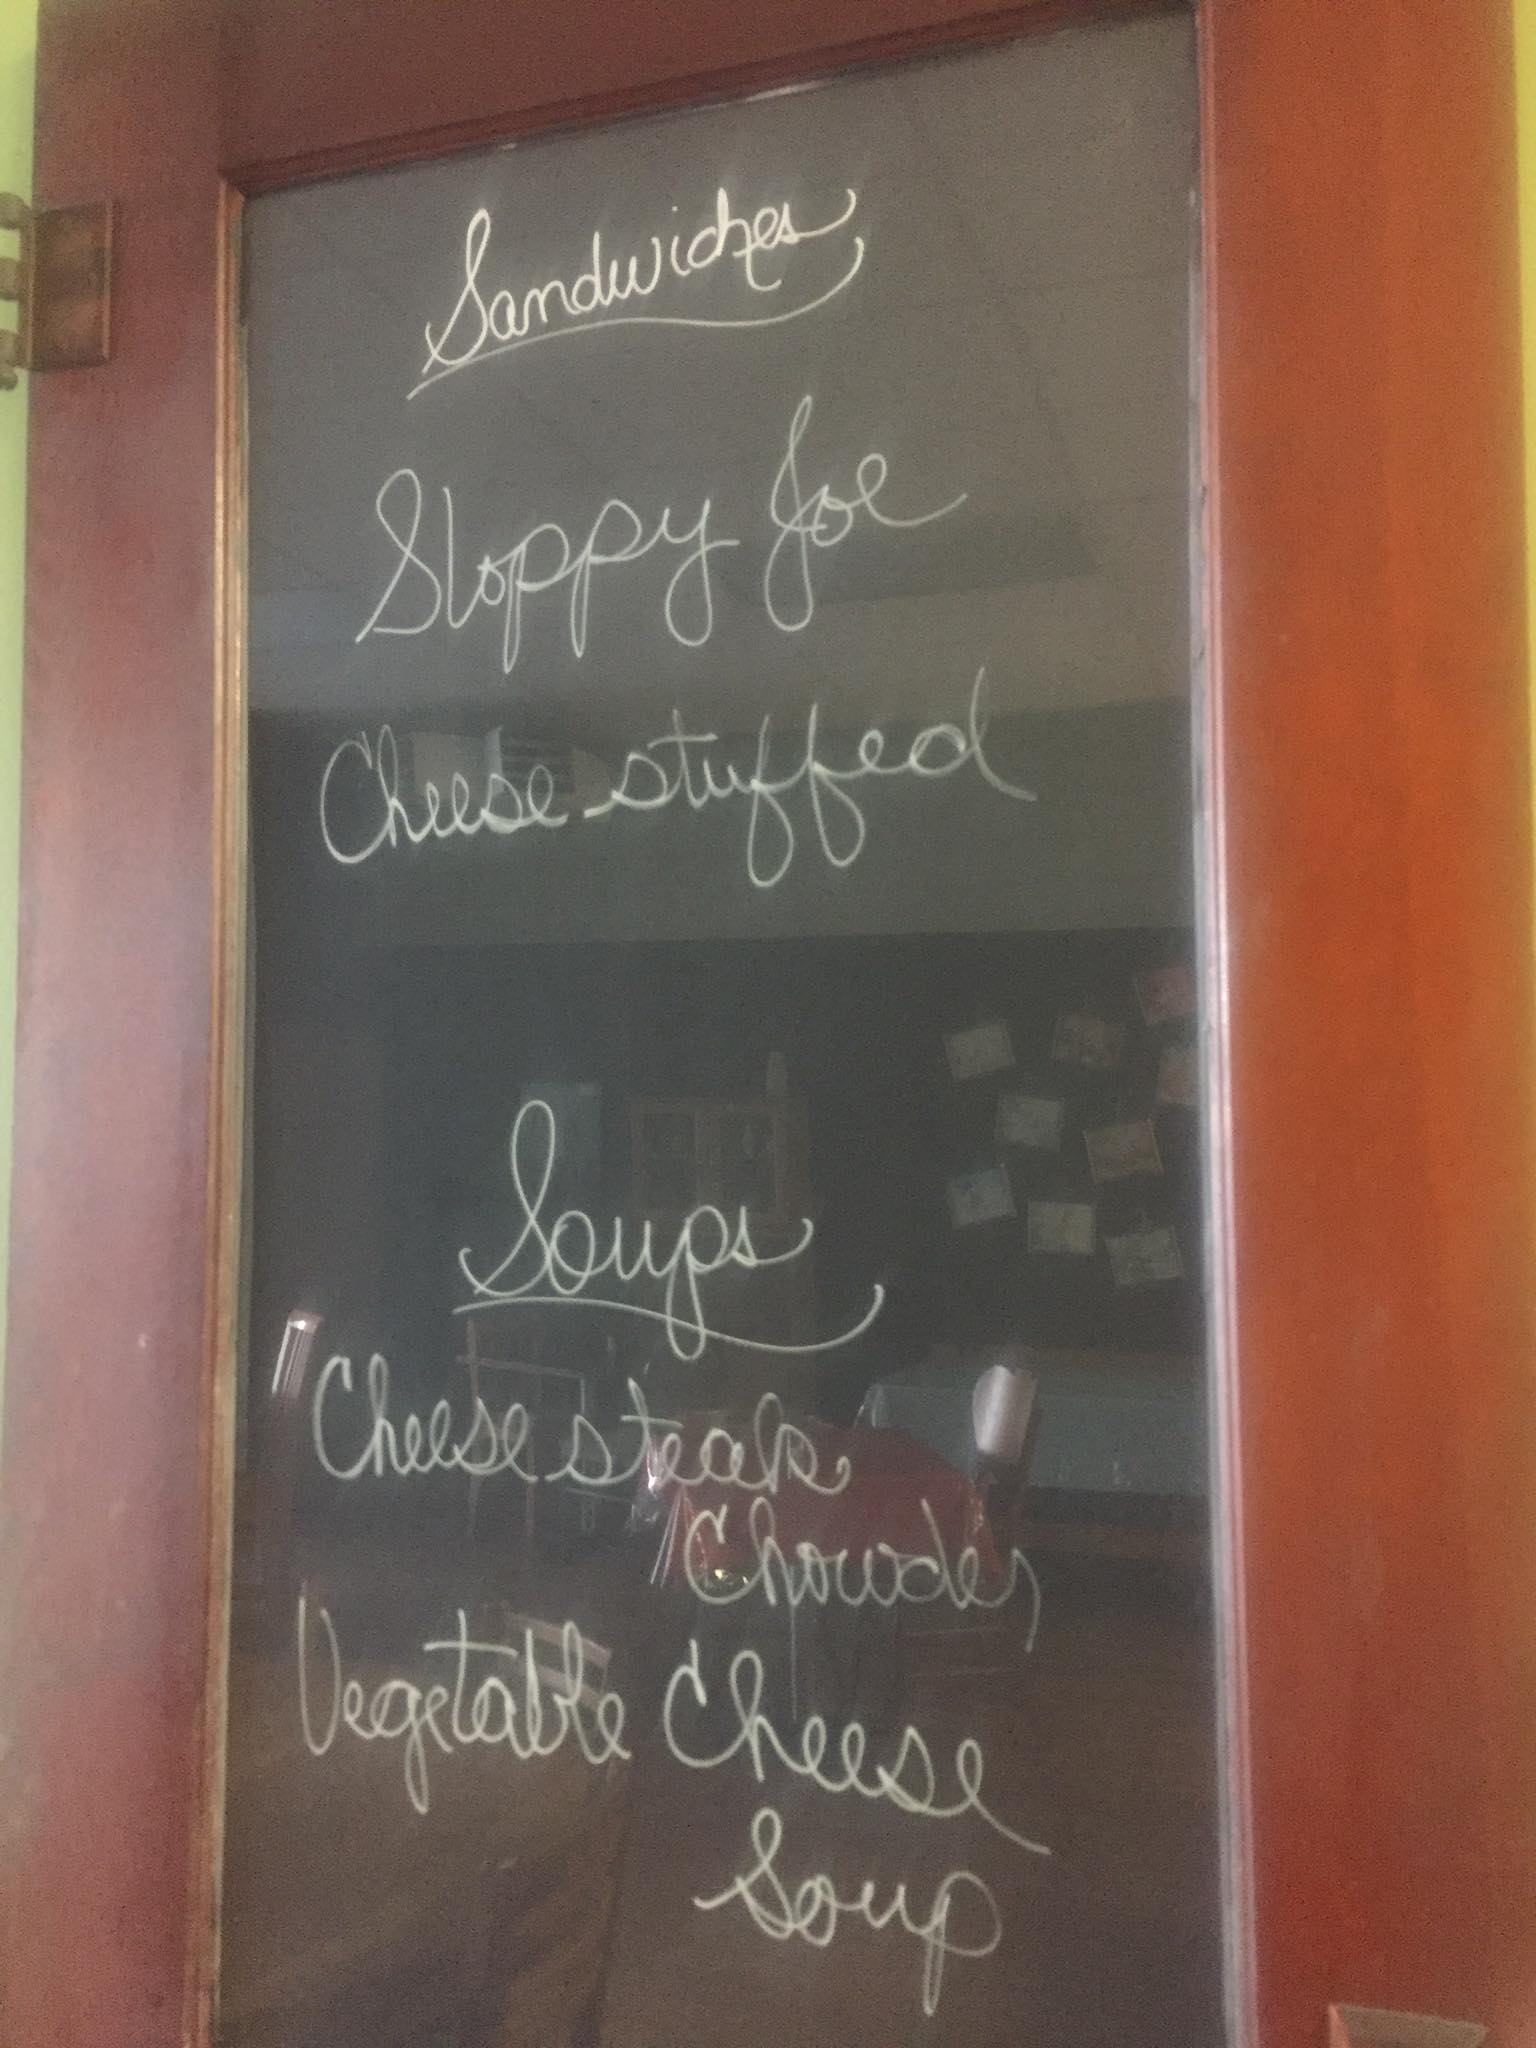 Sandwiches
Sloppy Joe
Cheese stuffed
Soups
Cheese steak
Chowder
Vegetable Cheese
Soup